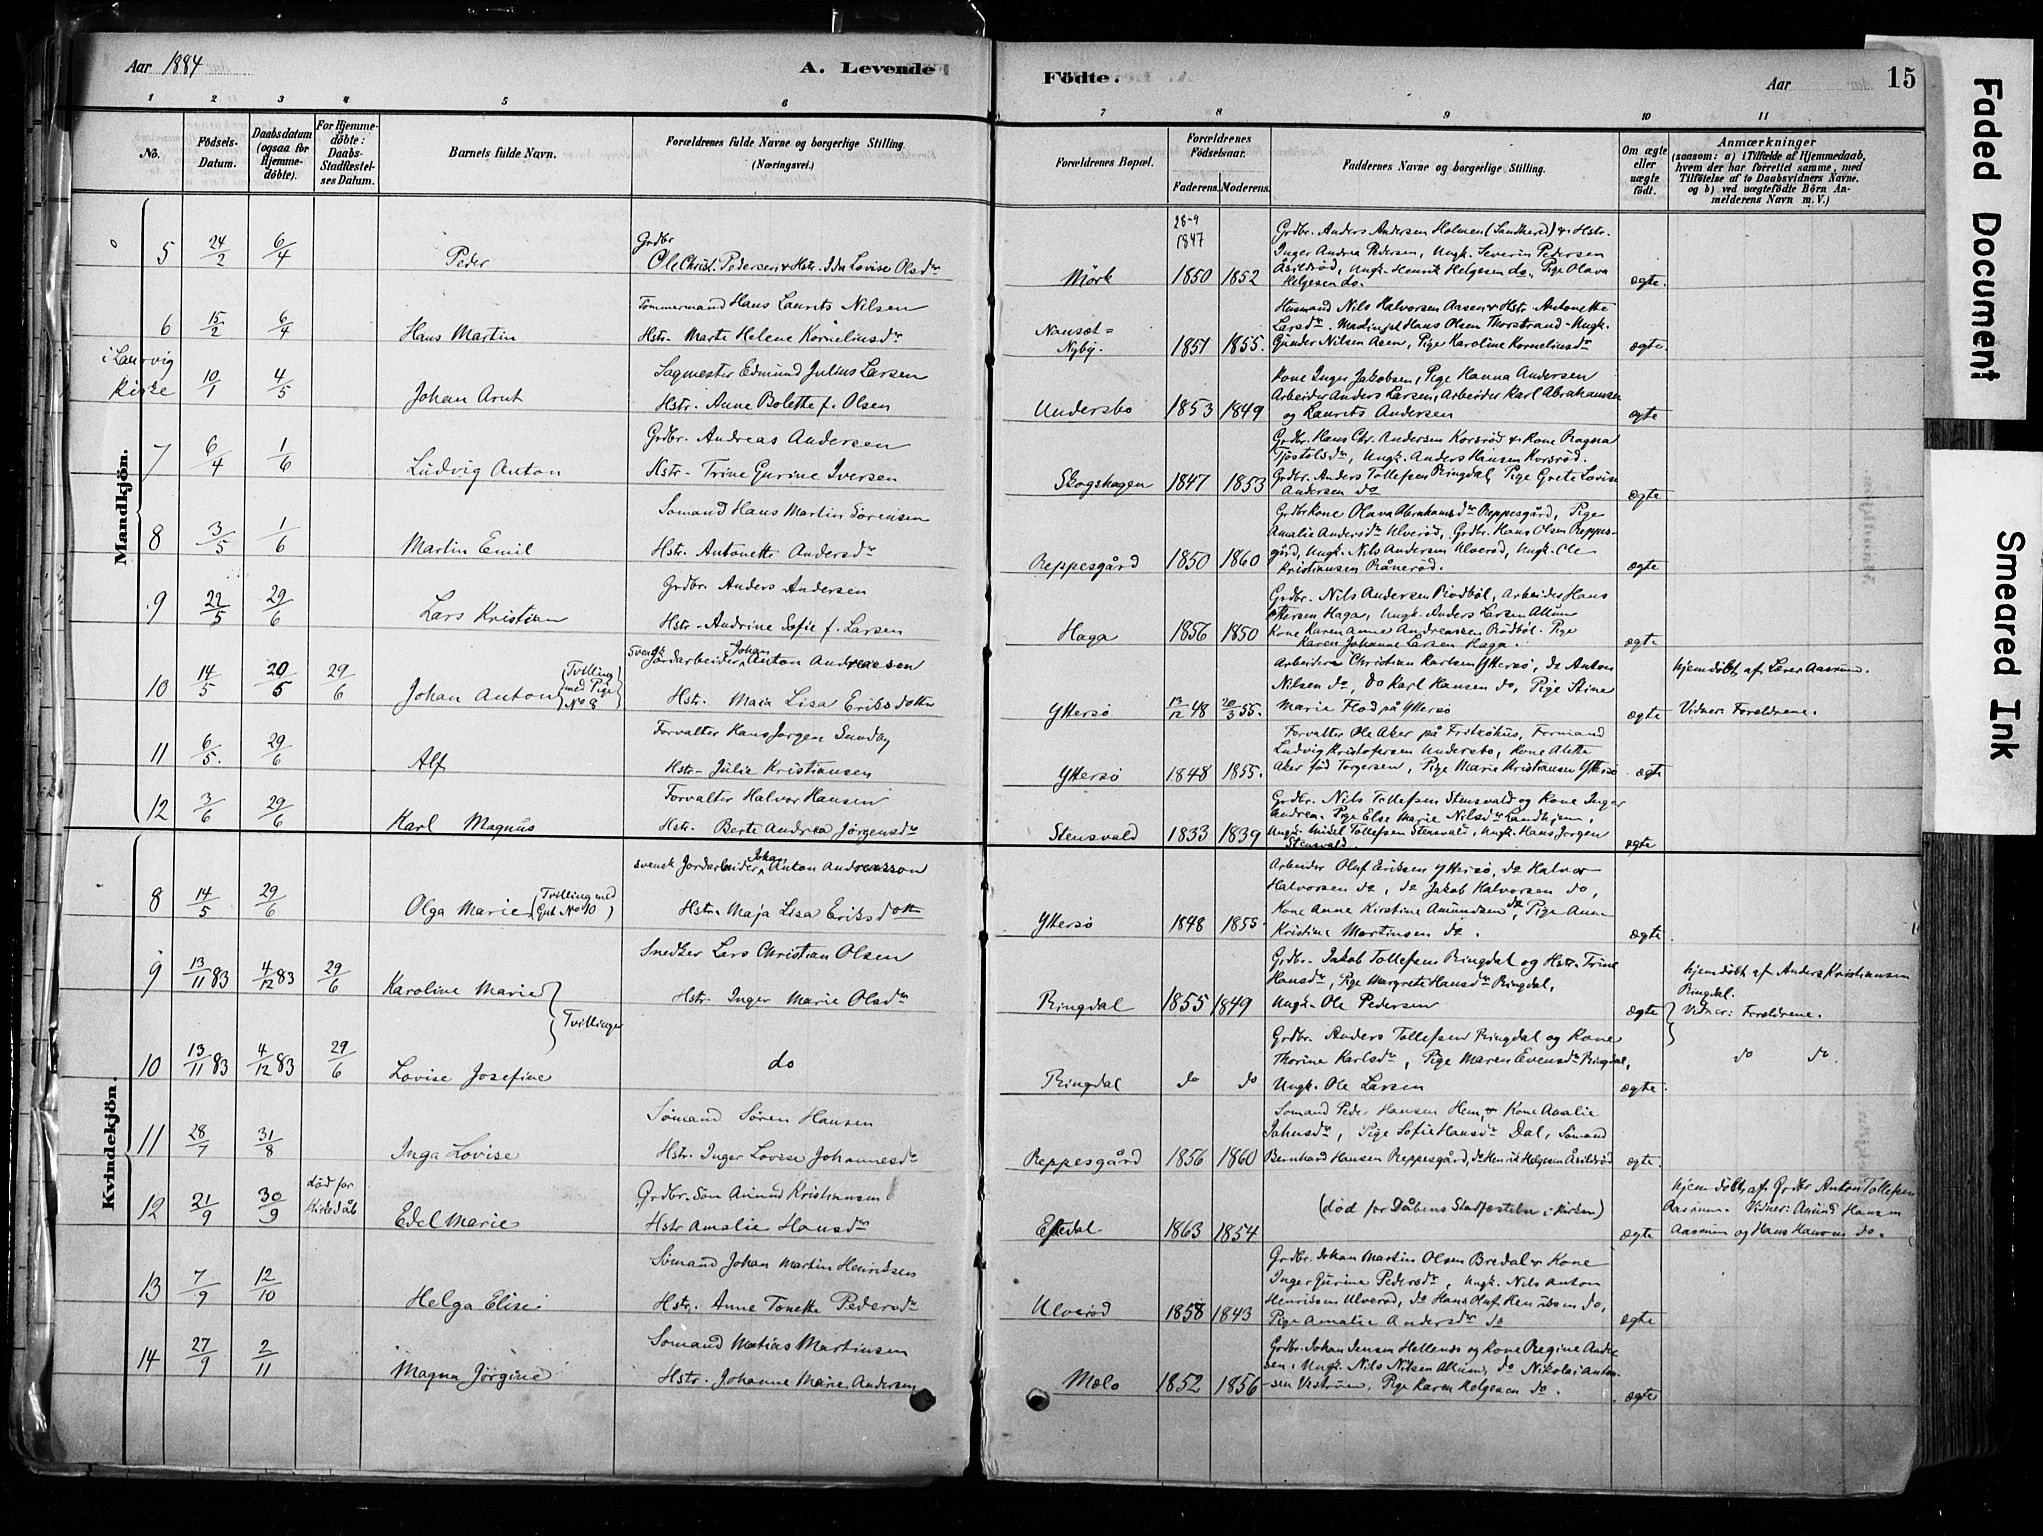 Aar 1884
A. Levende
Födte.
Aar
15
1 2 3 4 5 6 7 8 9 10 11
No.
Födsels-
Datum.
Daabsdatum
(ogsaa for
Hjemme-
döbte).
For Hjemme-
döbte:
Daabs-
Stadfæstel-
ses Datum.
Barnets fulde Navn.
Forældrenes fulde Navne og borgerlige Stilling.
(Næringsvei.)
Forældrenes Bopæl.
Forældrenes
Födselsaar.
Faderens. Moderens.
Faddernes Navne og borgerlige Stilling.
Om ægte
eller
uægte
födt.
Anmærkninger
(saasom: a) i Tilfælde af Hjemmedaab,
hvem der har forrettet samme, med
Tilföielse af to Daabsvidners Navne.
og b) ved uægtefödte Börn An-
melderens Navn m. V.)
Mandkjön.
5 24/2 6/4 Peder
Grdbr
Ole Christ. Pedersen & Hstr. Ida Lovise Olsdr
Mörk
28-9
1847
1850 1852
Grdbr. Anders Andersen Holmen (Sandkerød) & Hstr.
Inger Andrea Pedersen, Ungk. Severin Pedersen
Åsildrød, Ungk. Henrik Helgesen do, Pige Olava
Helgesen do.
ægte.
6 15/2 6/4 Hans Martin
Tömmermand Hans Laurits Nilsen
Hstr. Marte Helene Korneliusdr
Nanset=
Nyby.
1851 1855.
Husmand Nils Halvorsen Aasen & Hstr. Antonette
Larsdr. Hans Olsen Thorstrand. Ungk.
Gunder Nilsen Aasen, Pige Karoline Korneliusdr
ægte.
i Laurvig
Kirke
10/1 4/5 Johan Arnt
Sagmester Edmund Julius Larsen
Hstr. Anne Bolette f. Olsen
Undersbo 1853 1849
Kone Inger Jakobsen, Pige Hanna Andersen
Arbeider Anders Larsen, Arbeider Karl Abrahamsen
og Laurits Andersen
ægte
7 6/4 1/6 Ludvig Anton
Grdbr. Andreas Andersen
Hstr. Trine Gurine Iversen
Skogshagen 1847 1853
Grdbr. Hans Chr. Andersen Korsrød & Kone Ragna
Tjostolsdr, Ungk. Anders Hansen Korsrød.
Grdbr. Anders Tollefsen Ringdal, Pige Grete Lovise
Andersen do
ægte
8 3/5 1/6 Martin Emil
Sömand Hans Martin Sörensen
Hstr. Antonette Andersdr
Reppesgård 1850 1860
Grdbrkone Olava Abrahamsdr Reppesgård, Pige
Amalie Andersdr Ulverød, Grdbr. Hans Olsen Reppes-
gård, Ungk. Nils Andersen Ulverød, Ungk. Ole
Kristiansen Rånerød.
ægte
9 22/5 29/6 Lars Kristian
Grdbr. Anders Andersen
Hstr. Andrine Sofie f. Larsen
Haga 1856 1850
Grdbr. Nils Andersen Rödböl, Arbeider Hans
Ottersen Haga, Ungk. Anders Larsen Allum
Kone Karen Anne Andreassen Rödböl. Pige
Karen Johanne Larsen Haga.
ægte
10 14/5 20/5 29/6 Johan Anton (Tvilling
med Pige
No 8)
Svensk Jordarbeider Johan Anton Andreasen
Hstr. Maja Lisa Eriksdotter
Yttersø 13/12 48 20/3 55.
Arbeider Christian Karlsen Yttersø, do Anton
Nilsen do, do Karl Hansen do, Pige Stine
Marie Flod på Yttersø
ægte
Hjemdöbt af Lærer Aasrum.
Vidner: Forældrene.
11 6/5. 29/6 Alf
Forvalter Hans Jørgen Sunday
Hstr. Julie Kristiansen
Yttersø 1848 1855.
Forvalter Ole Aker på Fritzöhus, Formand
Ludvig Kristofersen Undersbo, Kone Alette
Aker föd Torgersen, Pige Marie Kristiansen Yttersø
ægte
12 3/6 29/6 Karl Magnus
Forvalter Halvor Hansen
Hstr. Berte Andrea Jørgensdr
Stensvald 1833 1839
Grdbr. Nils Tollefsen Stensvald og Kone Inger
Andrea. Pige Else Marie Nilsdr Sandhjem,
Ungk. Mikel Tollefsen Stensvald, Ungk. Hans Jørgen
Stensvald
ægte
Kvindekjön.
8 14/5 29/6 Olga Marie (Tvilling med
Gut No 10)
svensk Jordarbeider Johan Anton Andreasson
Hstr. Maja Lisa Eriksdotter
Yttersø 1848 1855.
Arbeider Oluf Eriksen Yttersø, do Halvor
Halvorsen do, do Jakob Halvorsen do,
Kone Anne Kirstine Amundsen do, Pige Anne
Kristine Martinsen do.
ægte
9 13/11 83 4/12 83 29/6 Karoline Marie
Tvillinger
Snedker Lars Christian Olsen
Hstr. Inger Marie Olsdr
Ringdal 1855 1849
Grdbr. Jakob Tollefsen Ringdal og Hstr. Trine
Hansdr, Pige Margrete Hansdr Ringdal,
Ungk. Ole Pedersen
ægte
Hjemdöbt af Anders Kristiansen
Ringdal.
Vidner: Forældrene.
10 13/11 83 4/12 83 29/6 Lovise Josefine
do
Ringdal do do
Grdbr. Anders Tollefsen Ringdal og Kone
Thorine Karlsdr, Pige Maren Evensdr Ringdal,
Ungk. Ole Larsen
ægte.
do do.
11 28/7 31/8 Inga Lovise
Sömand Sören Hansen
Hstr. Inger Lovise Johannesdr
Reppesgård 1856 1860
Sömand Peder Hansen Hem, & Kone Amalie
Jahnsdr, Pige Sofie Hansdr Dal, Sömand
Bernhard Hansen Reppesgård, do Henrik Helgesen Åsildrød
ægte.
12 21/9 30/9 död før
Kirkedåb
Edel Marie
Grdbr. Sön Amund Kristiansen
Hstr Amalie Hansdr
Eftedal 1863 1854
(död før Dåbens Stadfæstelse i Kirken)
ægte
Hjemdöbt af Grdbr Anton Tollefsen
Aasrum. Vidner: Amund Hansen
Aasrum og Hans Hansen do.
13 7/9 12/10 Helga Elise
Sömand Johan Martin Henriksen
Hstr. Anne Tonette Pedersdr
Ulverød 1858 1843
Grdbr. Johan Martin Olsen Bredal & Kone
Inger Jurine Pedersdr, Ungk. Nils Anton
Henriksen Ulverød, do Hans Oluf Henriksen do,
Pige Amalie Andersdr do
ægte
14 27/9 2/11 Magna Jörgine
Sömand Matias Martinsen
Hstr. Johanne Marie Andersen
Melø 1852 1856
Grdbr. Johan Jensen Hellenes og Kone Regine Ander-
sen, Ungk. Nils Nilsen Allum, do Nikolai Anton-
sen Vestrum, Pige Karen Helgesen do.
ægte
Faded Document
Smeared Ink